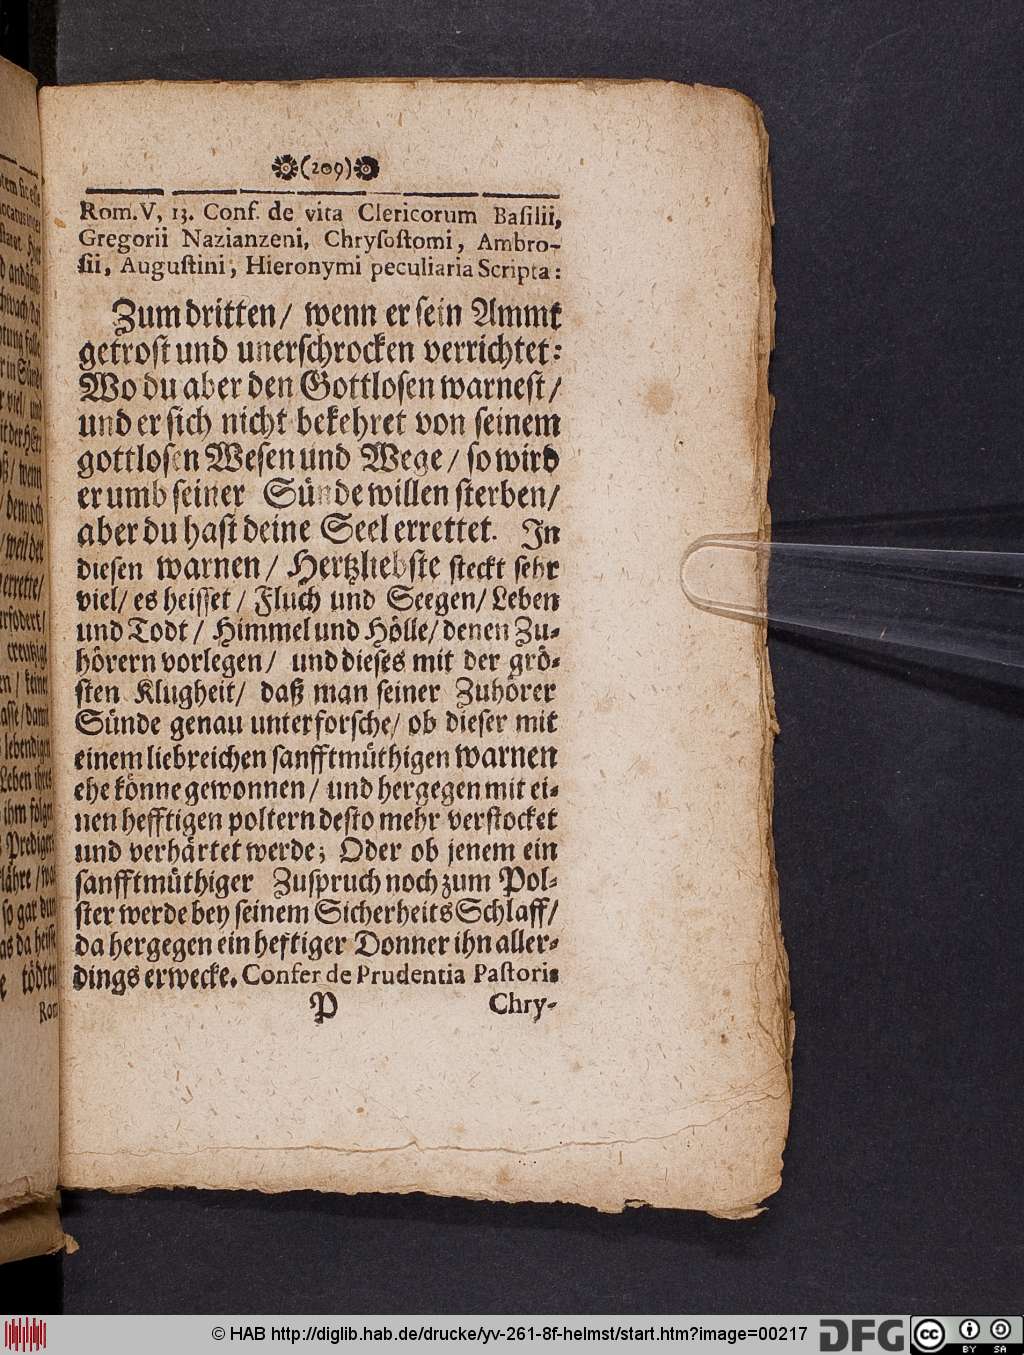 (209)
Rom. V, 13. Conf. de vita Clericorum Baſilii,
Gregorii Nazianzeni, Chryſoſtomi, Ambro-
ſii, Auguſtini, Hieronymi peculiaria Scripta:
Zum dritten / wenn er ſein Ammt
getroſt und unerſchrocken verrichtet:
Wo du aber den Gottloſen warneſt /
und er ſich nicht bekehret von ſeinem
gottloſen Weſen und Wege / ſo wird
er umb ſeiner Sünde willen ſterben /
aber du haſt deine Seel errettet. In
dieſen warnen / Hertzliebſte ſteckt ſehr
viel / es heiſſet / Fluch und Seegen / Leben
und Todt / Himmel und Hölle / denen Zu-
hörern vorlegen / und dieſes mit der grö-
ſten Klugheit / daß man ſeiner Zuhörer
Sünde genau unterforſche / ob dieſer mit
einem liebreichen ſanfftmüthigen warnen
ehe könne gewonnen / und hergegen mit ei-
nen hefftigen poltern deſto mehr verſtocket
und verhärtet werde; Oder ob jenem ein
ſanfftmüthiger Zuſpruch noch zum Pol-
ſter werde bey ſeinem Sicherheits Schlaff /
da hergegen ein heftiger Donner ihn aller-
dings erwecke. Confer de Prudentia Paſtoris
P Chry-
© HAB http://diglib.hab.de/drucke/yv-261-8f-helmst/start.htm?image=00217
DFG
cc BY SA